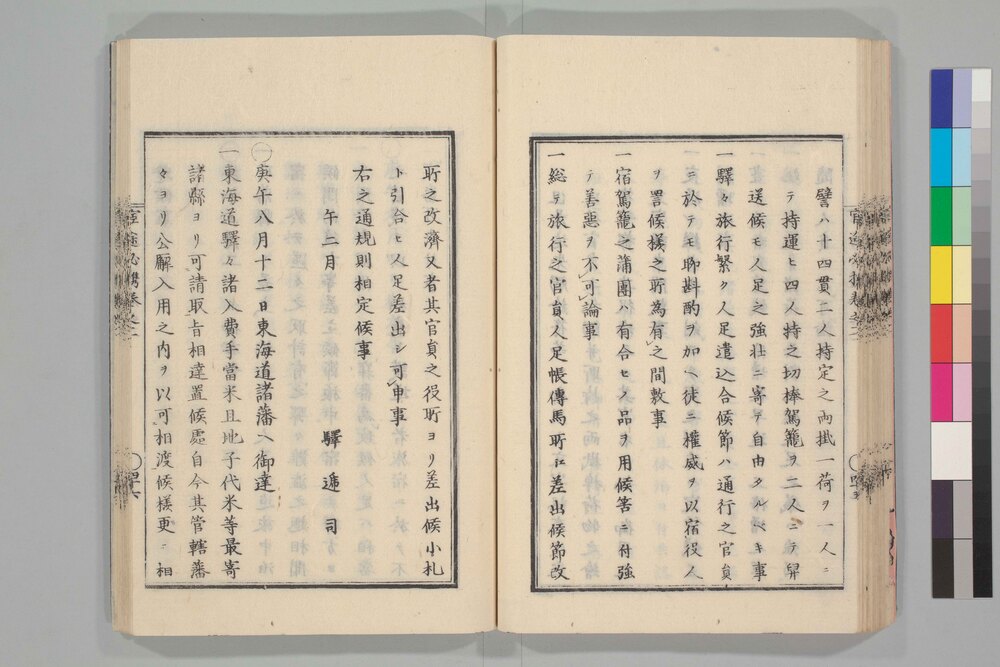 譬ハ十四貫二人持定之両掛一荷ヲ一人ニ
テ持運ヒ四人持之切棒駕籠ヲ二人ニテ舁
送候モ人足之強壮ニ寄テ自由タルベキ事
一驛々旅行繁ク人足遣込合候節ハ通行之官員
ニ於テモ聊斟酌ヲ加ヘ徒ニ權威ヲ以宿役人
ヲ詈候様之所為有之間敷事
一宿駕籠之蒲團ハ有合セノ品ヲ用候筈ニ付強
テ善悪ヲ不可論事
一総テ旅行之官員人足帳傳馬所江差出候節改
所之改濟又者其官員之役所ヨリ差出候小札
ト引合セ人足差出シ可申事
右之通規則相定候事
午二月　驛遞司
一庚午八月十二日東海道諸藩ヘ御達
一東海道驛々諸入費手當米且地子代米等最寄
諸縣ヨリ可請取旨相達置候處自今其管轄藩
々ヨリ公廨入用之内ヲ以可相渡候様更ニ相